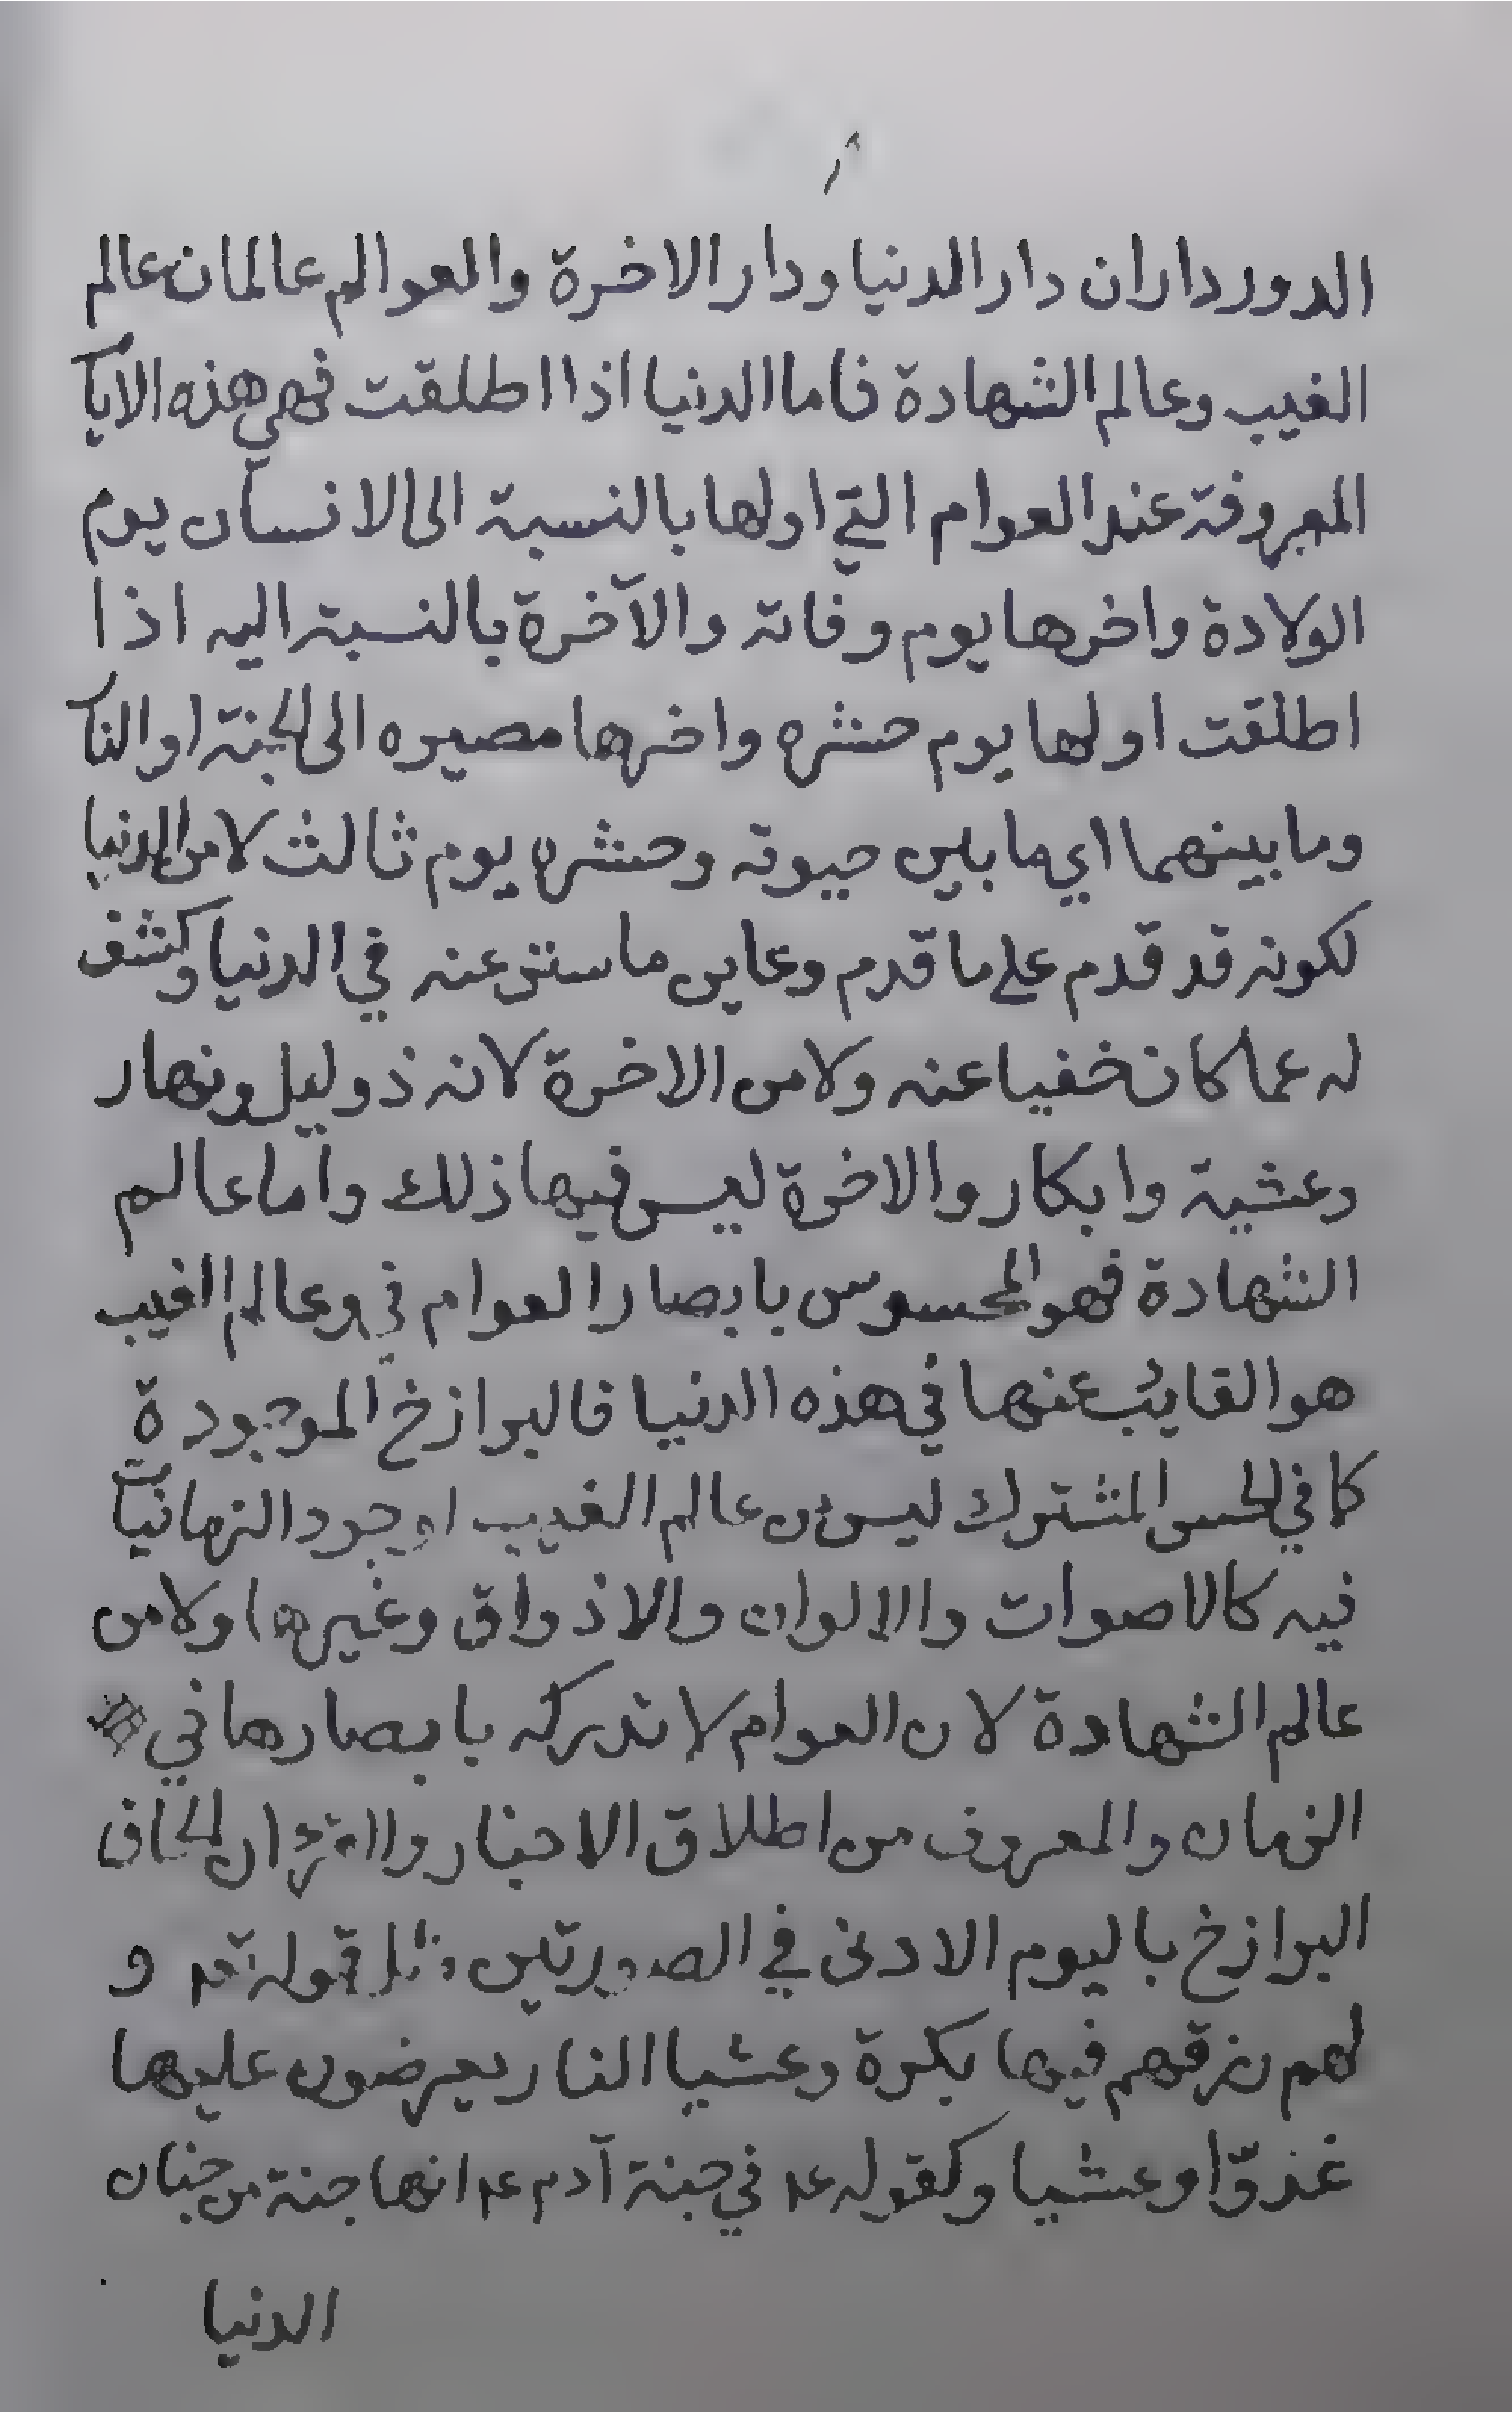 الدور داران دار الدنيا ودار الاخرة والعوالم عالمان عالم
الغيب وعالم الشهادة فاما الدنيا اذا اطلقت فهي هذه الايا
المعروفة عند العوام التي اولها بالنسبة الى الانسان يوم
الولادة واخرها يوم وفاته والآخرة بالنسبة اليه اذا
اطلقت اولها يوم حشره واخرها مصيره الى الجنة او النا
وما بينهما اي ما بين حيوته وحشره يوم ثالث لا من الدنيا
لكونه قد قدم على ما قدم وعاين ما ستر عنه في الدنيا وكشف
له عما كان خفيا عنه ولا من الاخرة لانه ذو ليل ونهار
وعشية وابكار والاخرة ليس فيها ذلك واما عالم
الشهادة فهو المحسوس بابصار العوام في وعالم الغيب
هو الغايب عنها في هذه الدنيا فالبرازخ الموجودة
كما في الحس المشترك ليس من عالم الغيب لوجود الزمانيات
فيه كالاصوات والالوان والاذواق وغيرها ولا من
عالم الشهادة لان العوام لا تدركه بابصارها في
الزمان والمعروف من اطلاق الاخبار والقران الحاق
البرازخ باليوم الادنى في الصورتين مثل قوله تع و
لهم رزقهم فيها بكرة وعشيا النار يعرضون عليها
غدوّا وعشيا وكقوله ع في جنة آدم ع انها جنة من جنان
الدنيا